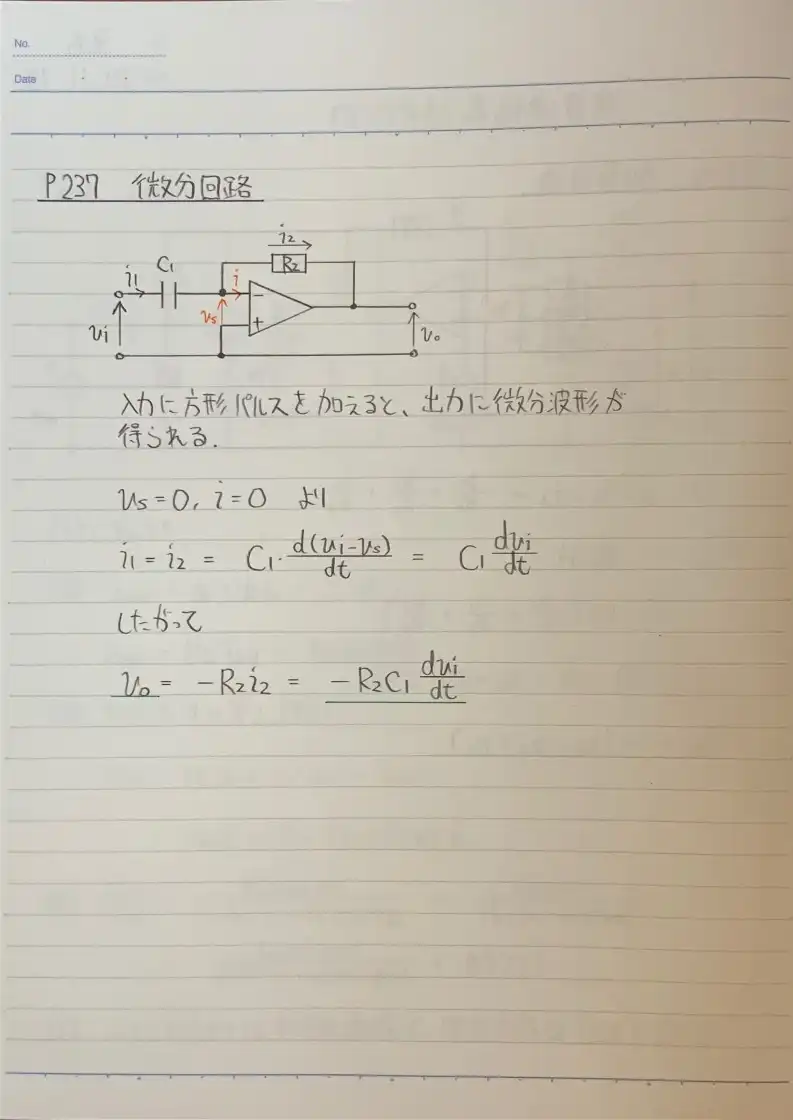 No.
Date
P237 微分回路
i₂
C₁
R₂
i₁
i
−
vs
+
vi
vo
入力に方形パルスを加えると、出力に微分波形が
得られる.
vs = 0, i = 0 より
i₁ = i₂ = C₁・d(vi−vs)/dt = C₁ dvi/dt
したがって
vo = −R₂i₂ = −R₂C₁ dvi/dt